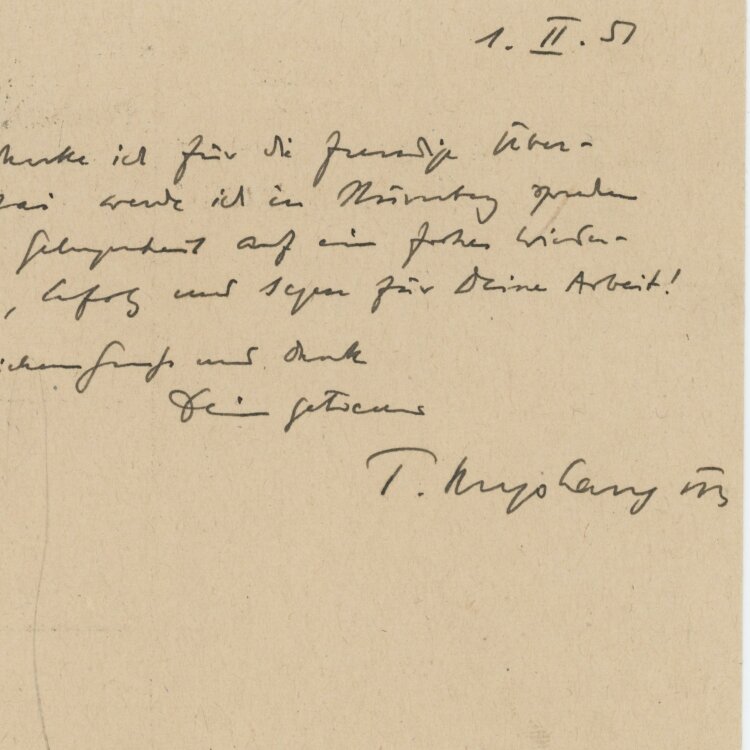 1. II. 51
danke ich für die freundige Über-
Mai werde ich in Nürnberg sprechen
Gelegenheit auf ein frohes Wieder-
, Erfolg und Segen für Deine Arbeit!
lichem Gruß und Dank
Dein getreuer
T.